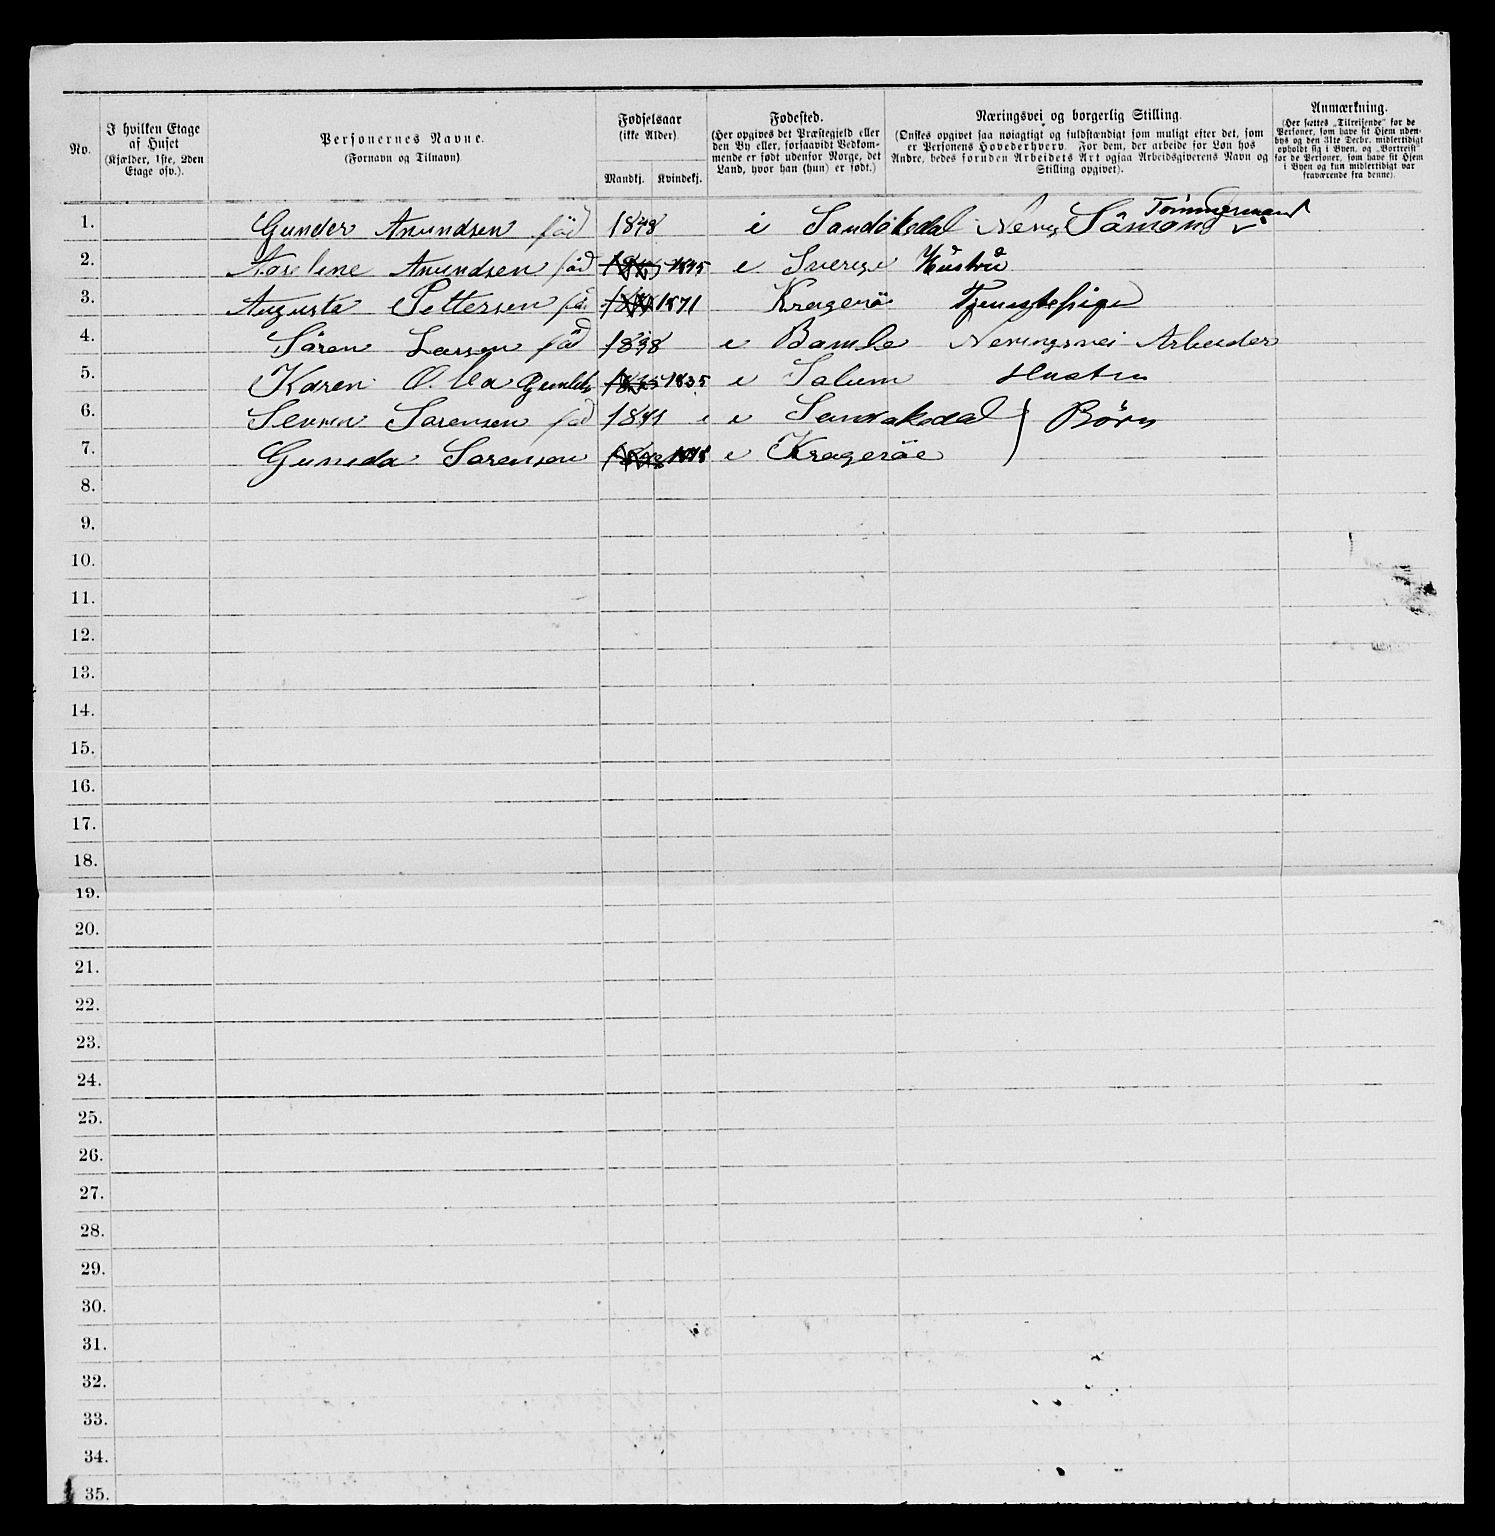 No.
I hvilken Etage
af Huset
(Kjælder, 1ste, 2den
Etage osv.).
Personernes Navne.
(Fornavn og Tilnavn)
Fødselsaar
(ikke Alder)
Mandkj. Kvindekj.
Fødested.
(Her opgives det Præstegjeld eller
den By eller, forsaavidt Vedkom-
mende er født udenfor Norge, det
Land, hvor han (hun) er født.)
Næringsvei og borgerlig Stilling.
(Ønskes opgivet saa nøiagtigt og fuldstændigt som muligt efter det, som
er Personens Hovederhverv. For dem, der arbeide for Løn hos
Andre, bedes foruden Arbeidets Art ogsaa Arbeidsgiverens Navn og
Stilling opgivet).
Anmærkning.
(Her sættes „Tilreisende" for de
Personer, som have sit Hjem uden-
bys og den 31te Decbr. midlertidigt
opholdt sig i Byen, og „Bortreist"
for de Personer, som have sit Hjem
i Byen og kun midlertidigt var
fraværende fra denne).
Tömmermand
1. Gunder Anundsen föd 1848 i Sandökedal Nerigs Sömand
2. Anundsen föd 1845 i Sverige Hustru
3. Augusta Pettersen fö 1871 Kragerö Tjenestepige
4. Sören Larsen föd 1838 i Bamle Neringsvei Arbeider
5. Karen 1835 i Solum Hustru
6. Sörensen föd 1841 i i Sandökedal } Børn
7. Gunda Sorensen i Kragerøe
8.
9.
10.
11.
12.
13.
14.
15.
16.
17.
18.
19.
20.
21.
22.
23.
24.
25.
26.
27.
28.
29.
30.
31.
32.
33.
34.
35.